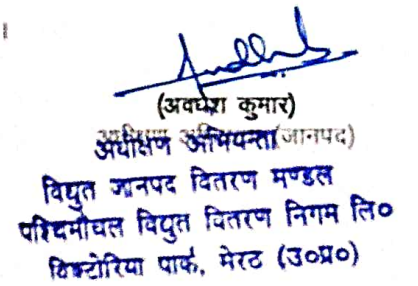 (अवधेश कुमार)
अधीक्षण अभियन्ता(जानपद)
विद्युत जानपद वितरण मण्डल
पश्चिमांचल विद्युत वितरण निगम लि०
विक्टोरिया पार्क, मेरठ (उ०प्र०)